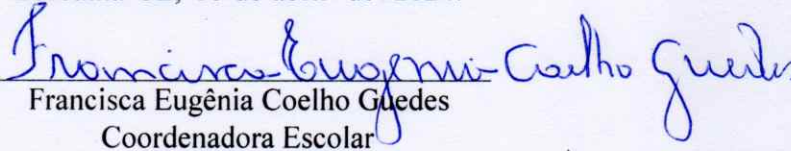 Francisca Eugênia Coelho Guedes
Francisca Eugênia Coelho Guedes
Coordenadora Escolar